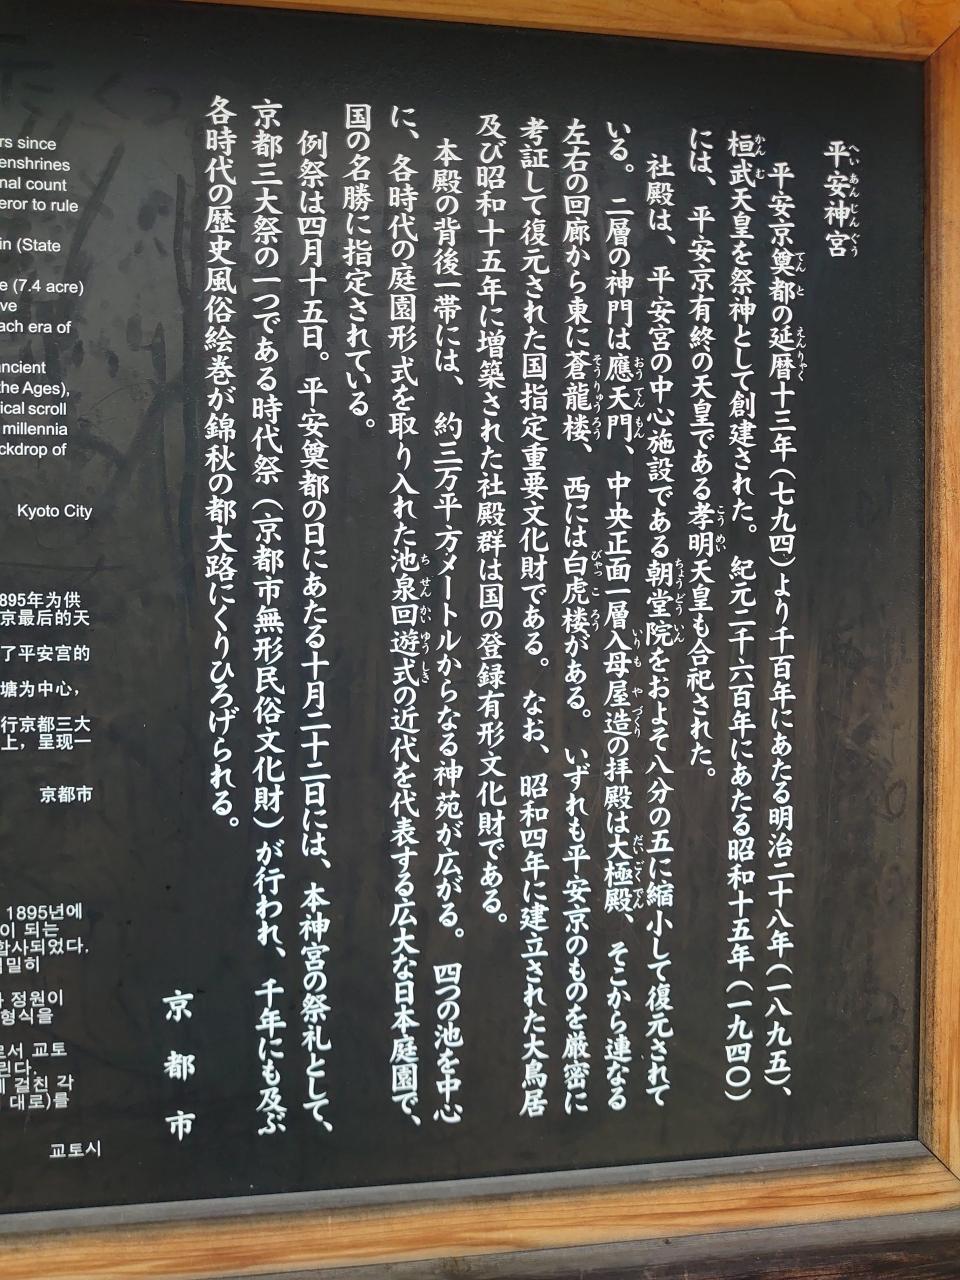 平安神宮
平安京奠都の延暦十三年（七九四）より千百年にあたる明治二十八年（一八九五）、
桓武天皇を祭神として創建された。紀元二千六百年にあたる昭和十五年（一九四〇）
には、平安京有終の天皇である孝明天皇も合祀された。
社殿は、平安宮の中心施設である朝堂院をおよそ八分の五に縮小して復元されて
いる。二層の神門は應天門、中央正面一層入母屋造の拝殿は大極殿、そこから連なる
左右の回廊から東に蒼龍楼、西には白虎楼がある。いずれも平安京のものを厳密に
考証して復元された国指定重要文化財である。なお、昭和四年に建立された大鳥居
及び昭和十五年に増築された社殿群は国の登録有形文化財である。
本殿の背後一帯には、約三万平方メートルからなる神苑が広がる。四つの池を中心
に、各時代の庭園形式を取り入れた池泉回遊式の近代を代表する広大な日本庭園で、
国の名勝に指定されている。
例祭は四月十五日。平安奠都の日にあたる十月二十二日には、本神宮の祭礼として、
京都三大祭の一つである時代祭（京都市無形民俗文化財）が行われ、千年にも及ぶ
各時代の歴史風俗絵巻が錦秋の都大路にくりひろげられる。
京都市
rs since
enshrines
nal count
eror to rule
in (State
e (7.4 acre)
ve
ach era of
ancient
the Ages),
rical scroll
millennia
ckdrop of
Kyoto City
1895年为供
京最后的天
了平安宫的
塘为中心，
行京都三大
上，呈现一
京都市
1895년에
이 되는
합사되었다.
밀히
정원이
형식을
로서 교토
린다.
걸친 각
대로)를
교토시